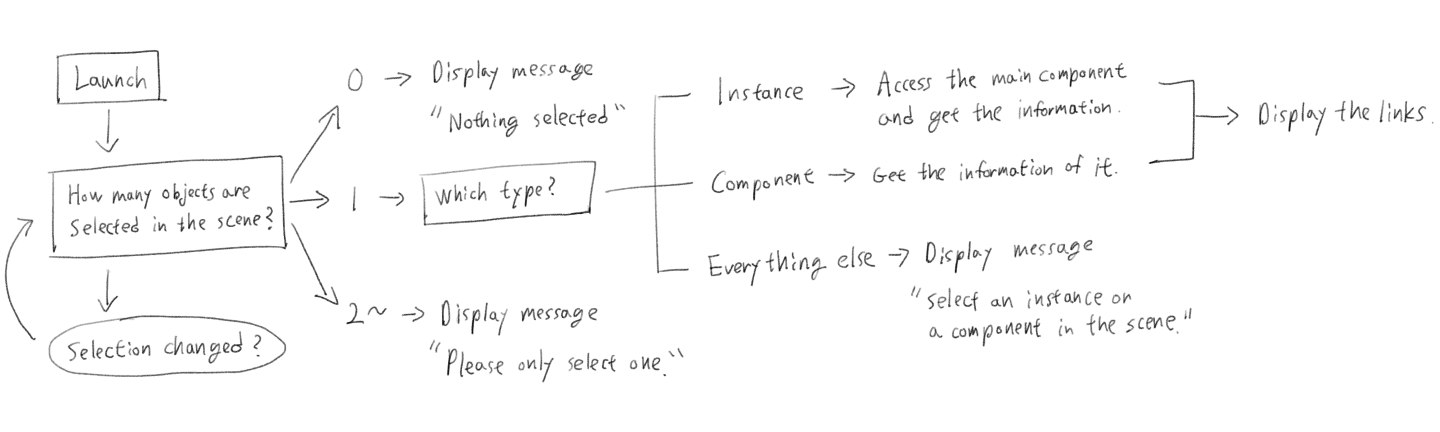 Launch
How many objects are
selected in the scene?
Selection changed?
0 → Display message
"Nothing selected"
1 → Which type?
2~ → Display message
"Please only select one."
Instance → Access the main component
and get the information.
Component → Get the information of it.
→ Display the links.
Everything else → Display message
"select an instance or
a component in the scene."